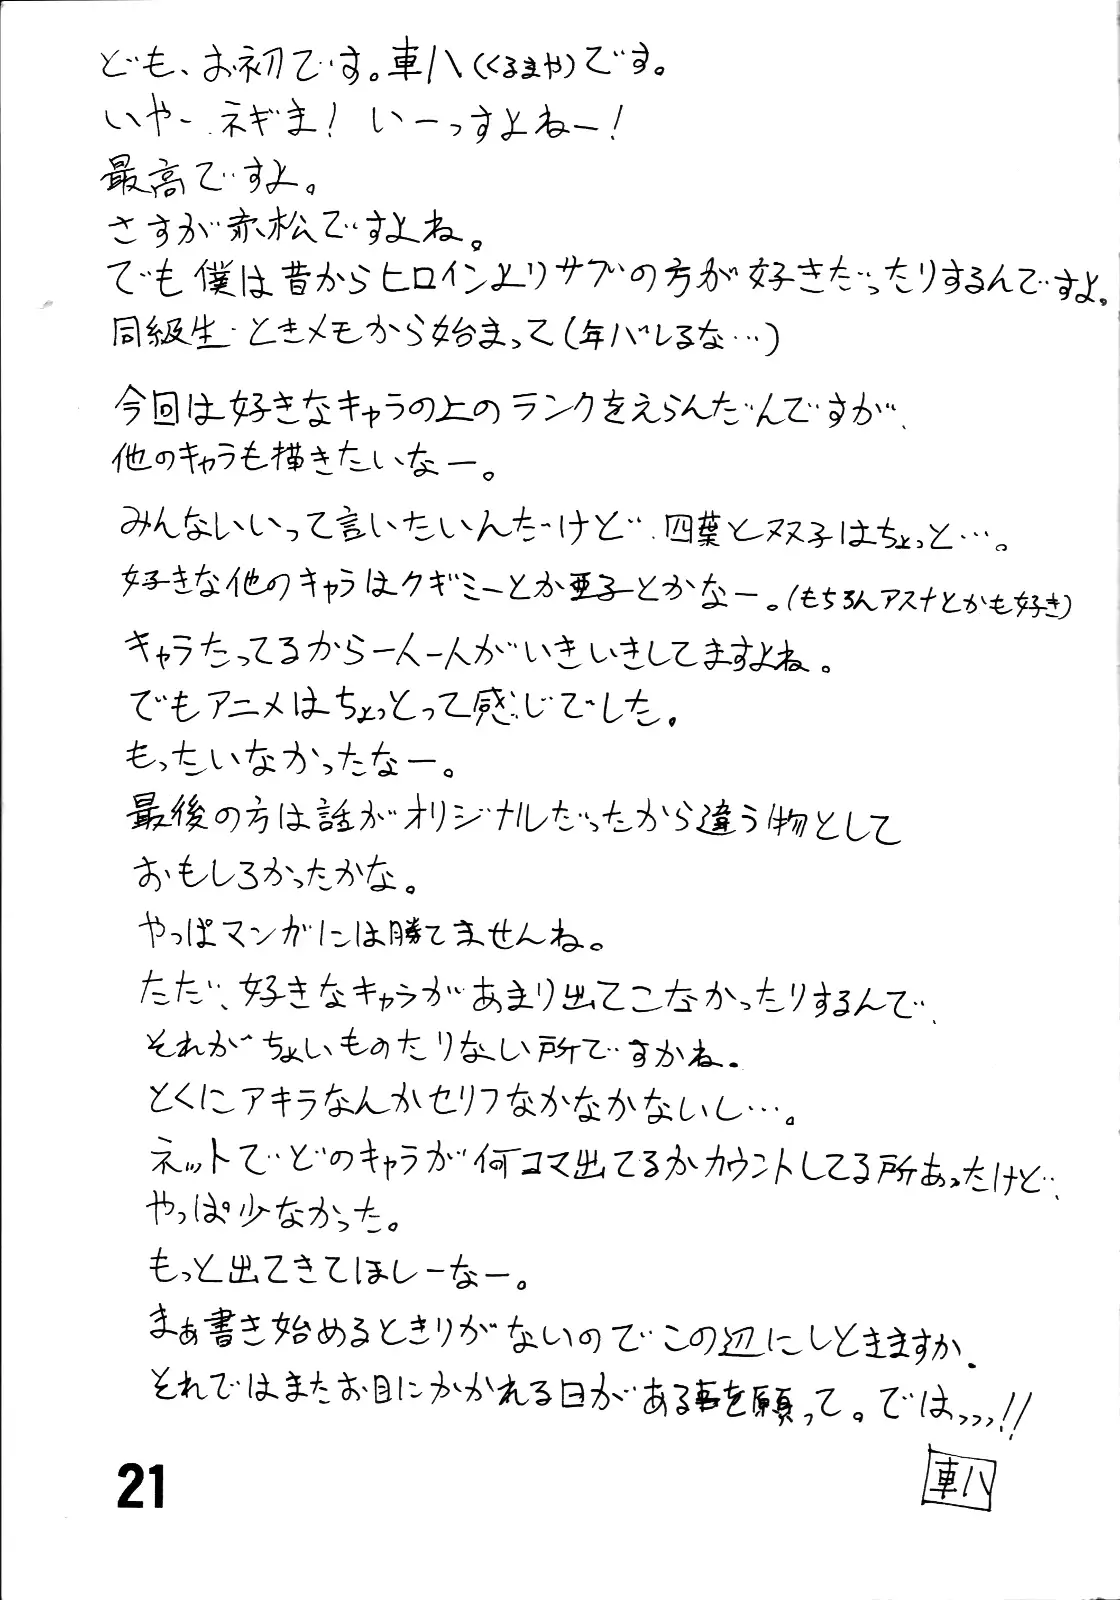 ども、お初です。車八(くるまや)です。
いやー、ネギま！ いーっすよねー！
最高ですよ。
さすが赤松ですよね。
でも僕は昔からヒロインよりサブの方が好きだったりするんですよ。
同級生・ときメモから始まって(年バレるな…)
今回は好きなキャラの上のランクをえらんだんですが、
他のキャラも描きたいなー。
みんないいって言いたいんだけど、四葉と双子はちょっと…。
好きな他のキャラはクギミーとか亜子とかなー。(もちろんアスナとかも好き)
キャラたってるから一人一人がいきいきしてますよね。
でもアニメはちょっとって感じでした。
もったいなかったなー。
最後の方は話がオリジナルだったから違う物として
おもしろかったかな。
やっぱマンガには勝てませんね。
ただ、好きなキャラがあまり出てこなかったりするんで、
それがちょいものたりない所ですかね。
とくにアキラなんかセリフなかなかないし…。
ネットでどのキャラが何コマ出てるかカウントしてる所あったけど、
やっぱ少なかった。
もっと出てきてほしーなー。
まぁ書き始めるときりがないのでこの辺にしときますか。
それではまたお目にかかれる日がある事を願って。ではっっっ!!
車八
21